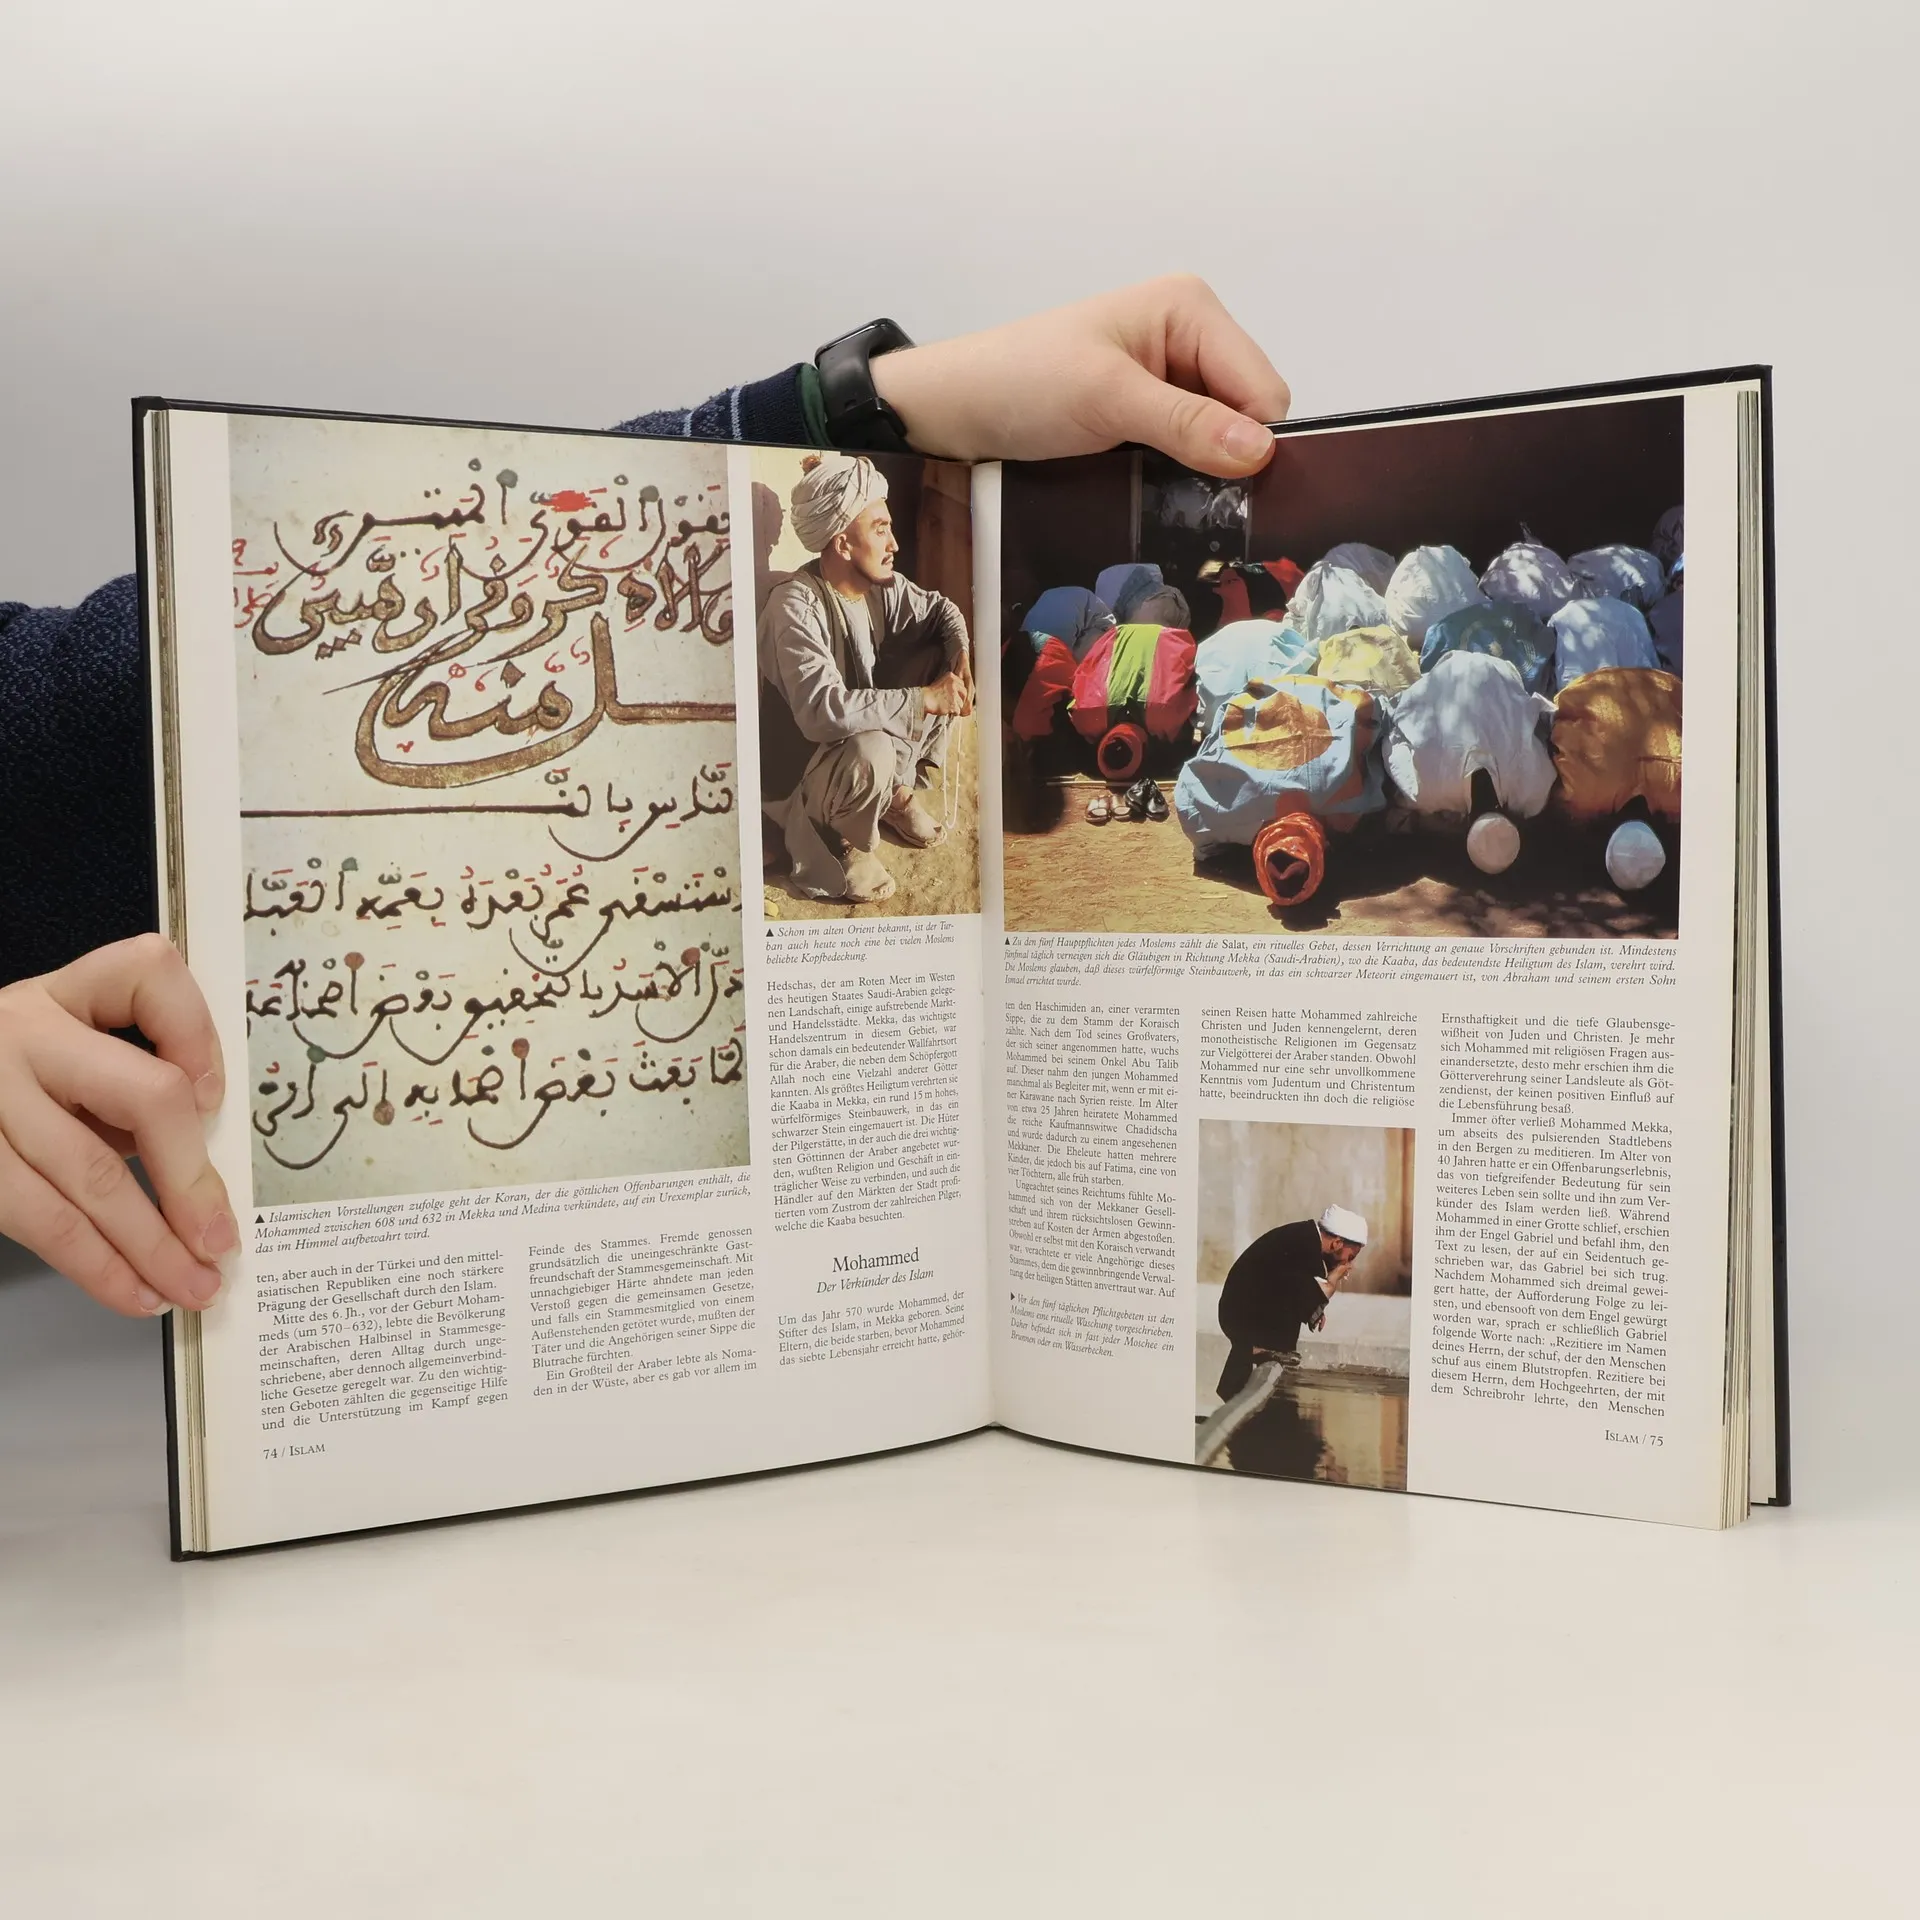 ▲ Islamischen Vorstellungen zufolge geht der Koran, der die göttlichen Offenbarungen enthält, die
Mohammed zwischen 608 und 632 in Mekka und Medina verkündete, auf ein Urexemplar zurück,
das im Himmel aufbewahrt wird.
ten, aber auch in der Türkei und den mittel-
asiatischen Republiken eine noch stärkere
Prägung der Gesellschaft durch den Islam.
Mitte des 6. Jh., vor der Geburt Moham-
meds (um 570–632), lebte die Bevölkerung
der Arabischen Halbinsel in Stammesge-
meinschaften, deren Alltag durch unge-
schriebene, aber dennoch allgemeinverbind-
liche Gesetze geregelt war. Zu den wichtig-
sten Geboten zählten die gegenseitige Hilfe
und die Unterstützung im Kampf gegen
Feinde des Stammes. Fremde genossen
grundsätzlich die uneingeschränkte Gast-
freundschaft der Stammesgemeinschaft. Mit
unnachgiebiger Härte ahndete man jeden
Verstoß gegen die gemeinsamen Gesetze,
und falls ein Stammesmitglied von einem
Außenstehenden getötet wurde, mußten der
Täter und die Angehörigen seiner Sippe die
Blutrache fürchten.
Ein Großteil der Araber lebte als Noma-
den in der Wüste, aber es gab vor allem im
▲ Schon im alten Orient bekannt, ist der Tur-
ban auch heute noch eine bei vielen Moslems
beliebte Kopfbedeckung.
Hedschas, der am Roten Meer im Westen
des heutigen Staates Saudi-Arabien gelege-
nen Landschaft, einige aufstrebende Markt-
und Handelsstädte. Mekka, das wichtigste
Handelszentrum in diesem Gebiet, war
schon damals ein bedeutender Wallfahrtsort
für die Araber, die neben dem Schöpfergott
Allah noch eine Vielzahl anderer Götter
kannten. Als größtes Heiligtum verehrten sie
die Kaaba in Mekka, ein rund 15 m hohes,
würfelförmiges Steinbauwerk, in das ein
schwarzer Stein eingemauert ist. Die Hüter
der Pilgerstätte, in der auch die drei wichtig-
sten Göttinnen der Araber angebetet wur-
den, wußten Religion und Geschäft in ein-
träglicher Weise zu verbinden, und auch die
Händler auf den Märkten der Stadt profi-
tierten vom Zustrom der zahlreichen Pilger,
welche die Kaaba besuchten.
Mohammed
Der Verkünder des Islam
Um das Jahr 570 wurde Mohammed, der
Stifter des Islam, in Mekka geboren. Seine
Eltern, die beide starben, bevor Mohammed
das siebte Lebensjahr erreicht hatte, gehör-
74 / ISLAM
▲ Zu den fünf Hauptpflichten jedes Moslems zählt die Salat, ein rituelles Gebet, dessen Verrichtung an genaue Vorschriften gebunden ist. Mindestens
fünfmal täglich verneigen sich die Gläubigen in Richtung Mekka (Saudi-Arabien), wo die Kaaba, das bedeutendste Heiligtum des Islam, verehrt wird.
Die Moslems glauben, daß dieses würfelförmige Steinbauwerk, in das ein schwarzer Meteorit eingemauert ist, von Abraham und seinem ersten Sohn
Ismael errichtet wurde.
ten den Haschimiden an, einer verarmten
Sippe, die zu dem Stamm der Koraisch
zählte. Nach dem Tod seines Großvaters,
der sich seiner angenommen hatte, wuchs
Mohammed bei seinem Onkel Abu Talib
auf. Dieser nahm den jungen Mohammed
manchmal als Begleiter mit, wenn er mit ei-
ner Karawane nach Syrien reiste. Im Alter
von etwa 25 Jahren heiratete Mohammed
die reiche Kaufmannswitwe Chadidscha
und wurde dadurch zu einem angesehenen
Mekkaner. Die Eheleute hatten mehrere
Kinder, die jedoch bis auf Fatima, eine von
vier Töchtern, alle früh starben.
Ungeachtet seines Reichtums fühlte Mo-
hammed sich von der Mekkaner Gesell-
schaft und ihrem rücksichtslosen Gewinn-
streben auf Kosten der Armen abgestoßen.
Obwohl er selbst mit den Koraisch verwandt
war, verachtete er viele Angehörige dieses
Stammes, dem die gewinnbringende Verwal-
tung der heiligen Stätten anvertraut war. Auf
▶ Vor den fünf täglichen Pflichtgebeten ist den
Moslems eine rituelle Waschung vorgeschrieben.
Daher befindet sich in fast jeder Moschee ein
Brunnen oder ein Wasserbecken.
seinen Reisen hatte Mohammed zahlreiche
Christen und Juden kennengelernt, deren
monotheistische Religionen im Gegensatz
zur Vielgötterei der Araber standen. Obwohl
Mohammed nur eine sehr unvollkommene
Kenntnis vom Judentum und Christentum
hatte, beeindruckten ihn doch die religiöse
Ernsthaftigkeit und die tiefe Glaubensge-
wißheit von Juden und Christen. Je mehr
sich Mohammed mit religiösen Fragen aus-
einandersetzte, desto mehr erschien ihm die
Götterverehrung seiner Landsleute als Göt-
zendienst, der keinen positiven Einfluß auf
die Lebensführung besaß.
Immer öfter verließ Mohammed Mekka,
um abseits des pulsierenden Stadtlebens
in den Bergen zu meditieren. Im Alter von
40 Jahren hatte er ein Offenbarungserlebnis,
das von tiefgreifender Bedeutung für sein
weiteres Leben sein sollte und ihn zum Ver-
künder des Islam werden ließ. Während
Mohammed in einer Grotte schlief, erschien
ihm der Engel Gabriel und befahl ihm, den
Text zu lesen, der auf ein Seidentuch ge-
schrieben war, das Gabriel bei sich trug.
Nachdem Mohammed sich dreimal gewei-
gert hatte, der Aufforderung Folge zu lei-
sten, und ebensooft von dem Engel gewürgt
worden war, sprach er schließlich Gabriel
folgende Worte nach: „Rezitiere im Namen
deines Herrn, der schuf, der den Menschen
schuf aus einem Blutstropfen. Rezitiere bei
diesem Herrn, dem Hochgeehrten, der mit
dem Schreibrohr lehrte, den Menschen
ISLAM / 75